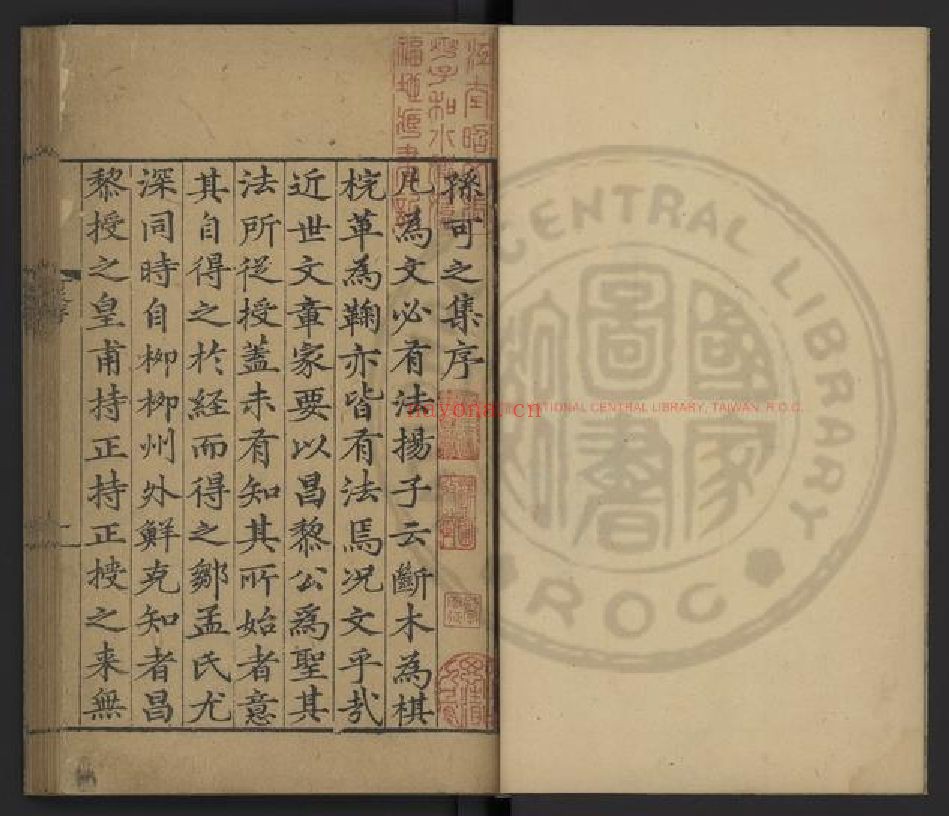 孫可之集序
凡為文必有法揚子云斷木為棋
梡革為鞠亦皆有法焉况文乎哉
近世文章家要以昌黎公為聖其
法所從授蓋未有知其所始者意
其自得之於經而得之鄒孟氏尤
深同時自柳柳州外鮮克知者昌
黎授之皇甫持正持正授之来無
CENTRAL LIBRARY
ROC
國家
圖書
NATIONAL CENTRAL LIBRARY, TAIWAN, R.O.C.